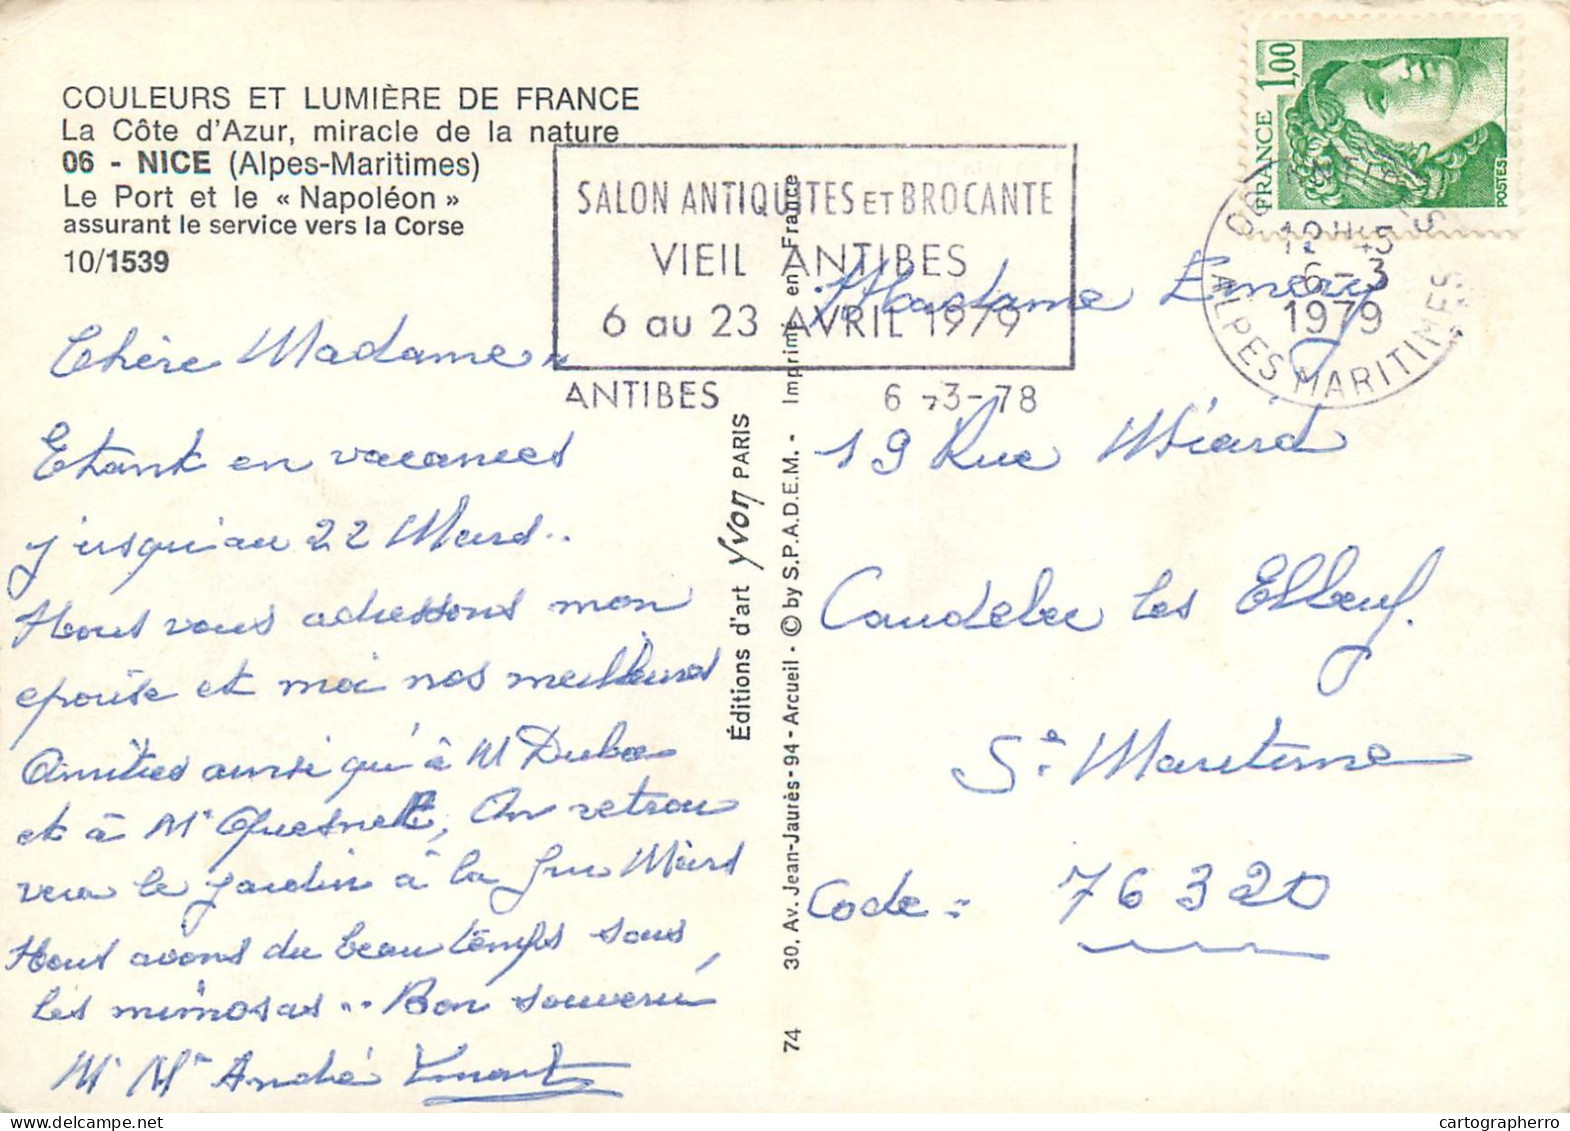 COULEURS ET LUMIÈRE DE FRANCE
La Côte d'Azur, miracle de la nature
06 - NICE (Alpes-Maritimes)
Le Port et le « Napoléon »
assurant le service vers la Corse
10/1539
SALON ANTIQUITES ET BROCANTE
VIEIL ANTIBES
6 au 23 AVRIL 1979
ANTIBES 6-3-78
1,00
FRANCE
POSTES
6-3
1979
ALPES MARITIMES
Chère Madame
Etant en vacances
jusqu'au 22 Mars..
Nous vous adressons mon
epouse et moi nos meilleurs
Amities ainsi qu'à M Duboc
et à Me Quesnel, On retrou
vera le jardin à la fin Mars
Nous avons du beau temps sous
les mimosas .. Bon souvenir
Mr Me André
Éditions d'art yvon PARIS
74 30. Av. Jean-Jaurès - 94 - Arcueil - © by S.P.A.D.E.M. - Imprimé en France
Madame Emery
19 Rue Méard
Caudebec les Elbeuf.
Se Maritime
Code = 76320
cartographerro